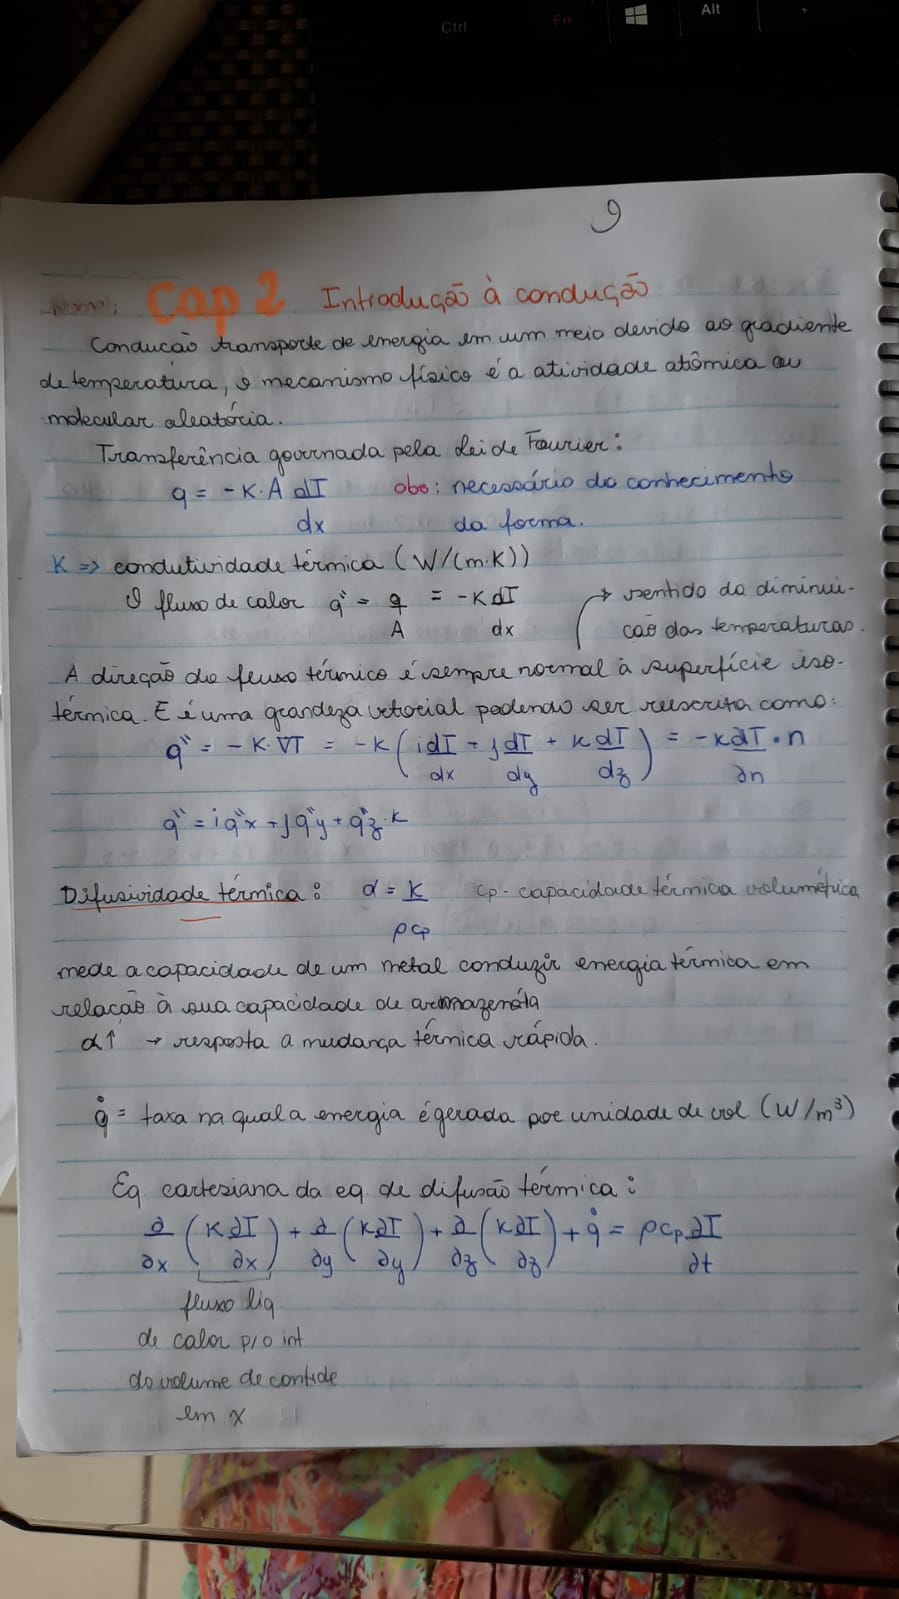 Ctrl
Fn
Alt
9
Nome: Cap 2 Introdução à condução
Condução transporte de energia em um meio devido ao gradiente
de temperatura, o mecanismo físico é a atividade atômica ou
molecular aleatória.
Transferência governada pela Lei de Fourier:
q = -K.A dT/dx   obs: necessário do conhecimento
da forma.
K => condutividade térmica (W/(m.K))
O fluxo de calor q" = q/A = -K dT/dx   → sentido da diminui-
ção das temperaturas.
A direção do fluxo térmico é sempre normal à superfície iso-
térmica. E é uma grandeza vetorial podendo ser reescrita como:
q" = -K.∇T = -K (i dT/dx + j dT/dy + K dT/dz) = -K ∂T/∂n . n
q" = i q"x + j q"y + q"z.K
Difusividade térmica: α = K/ρcp   cp - capacidade térmica volumétrica
mede a capacidade de um metal conduzir energia térmica em
relação à sua capacidade de armazenála
α↑ → resposta a mudança térmica rápida.
q̇ = taxa na qual a energia é gerada por unidade de vol. (W/m³)
Eq. cartesiana da eq. de difusão térmica:
∂/∂x (K ∂T/∂x) + ∂/∂y (K ∂T/∂y) + ∂/∂z (K ∂T/∂z) + q̇ = ρcp ∂T/∂t
fluxo liq
de calor p/ o int.
do volume de
em x